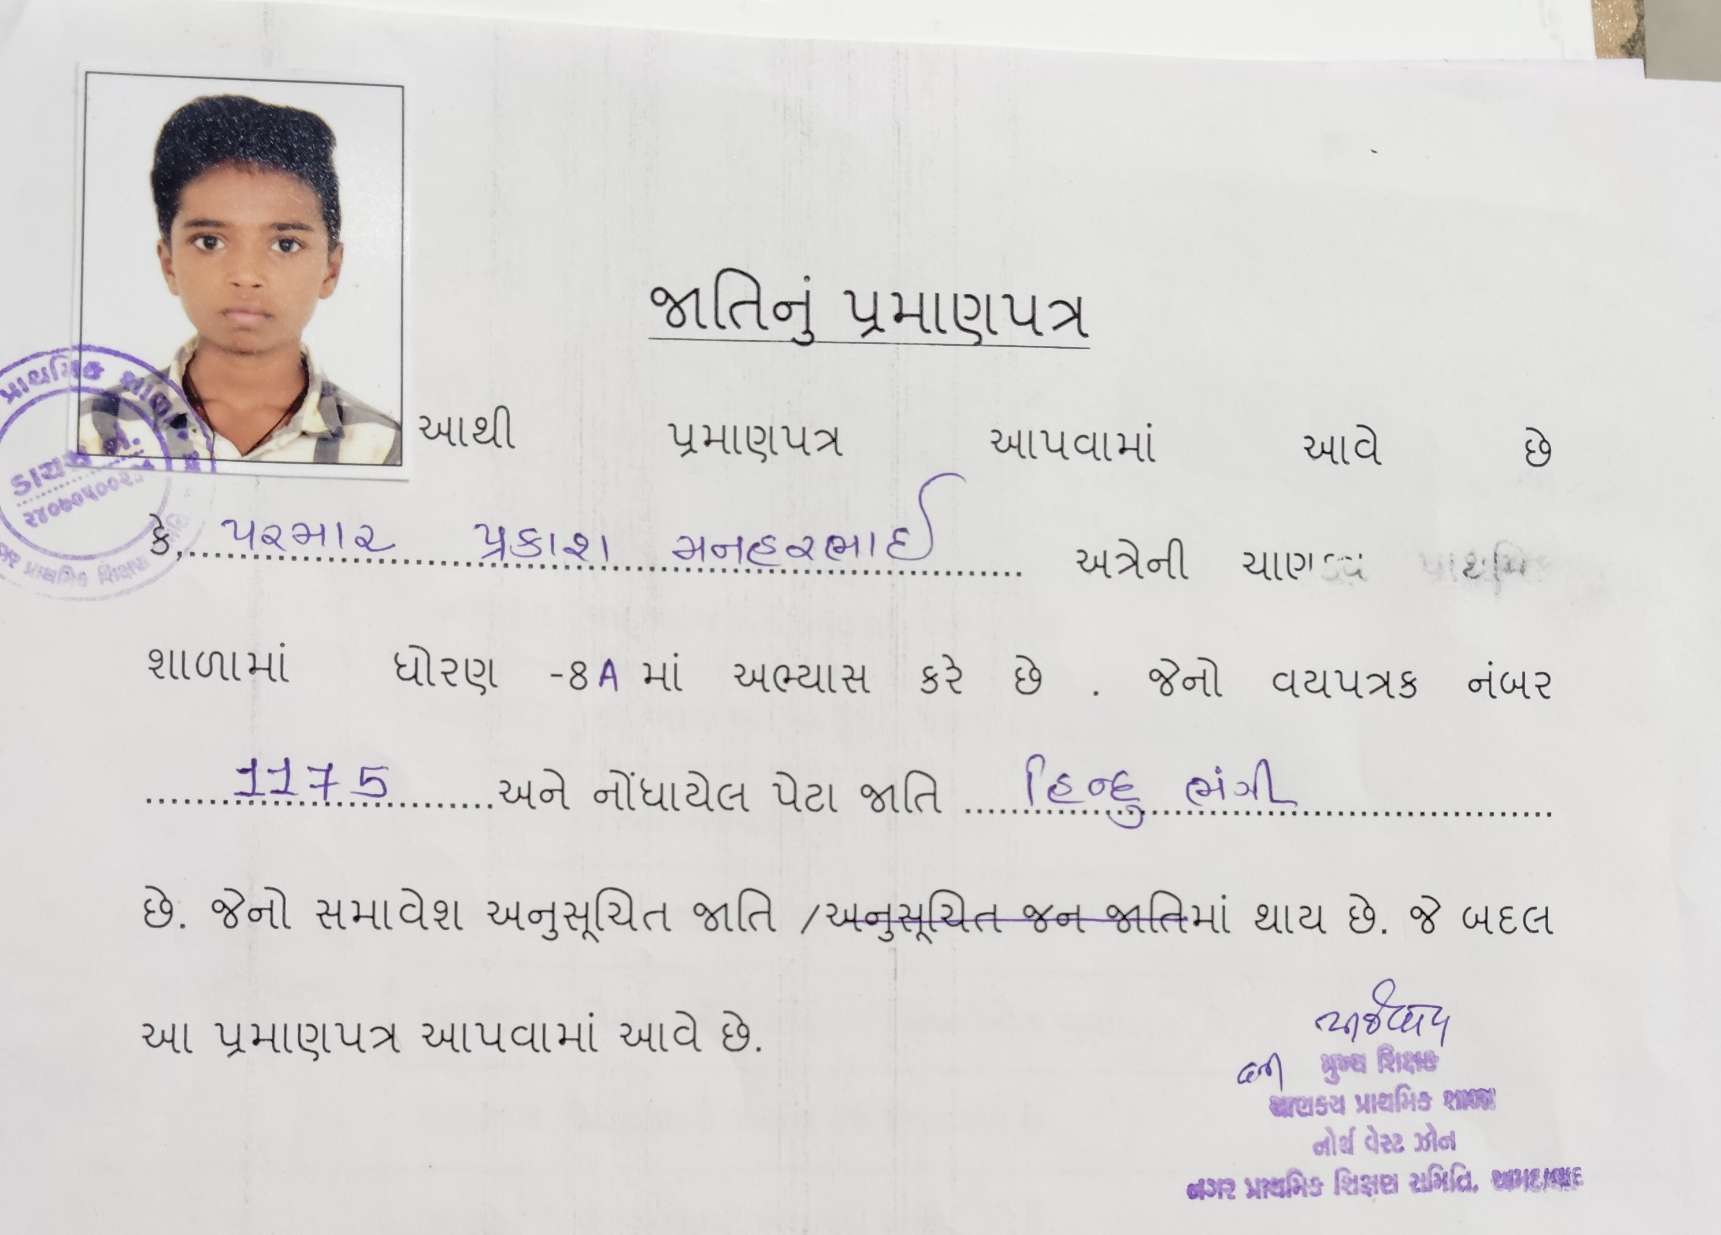 જાતિનું પ્રમાણપત્ર
આથી પ્રમાણપત્ર આપવામાં આવે છે
કે, પરમાર પ્રકાશ મનહરભાઈ અત્રેની ચાણક્ય પ્રાથમિક
શાળામાં ધોરણ -8 A માં અભ્યાસ કરે છે . જેનો વયપત્રક નંબર
1175 અને નોંધાયેલ પેટા જાતિ હિન્દુ ભંગી
છે. જેનો સમાવેશ અનુસૂચિત જાતિ /અનુસૂચિત જન જાતિમાં થાય છે. જે બદલ
આ પ્રમાણપત્ર આપવામાં આવે છે.
મુખ્ય શિક્ષક
ચાણક્ય પ્રાથમિક શાળા
નોર્થ વેસ્ટ ઝોન
નગર પ્રાથમિક શિક્ષણ સમિતિ, અમદાવાદ
પ્રાથમિક શાળા
ડાયસ નં.
પ્રાથમિક શિક્ષણ